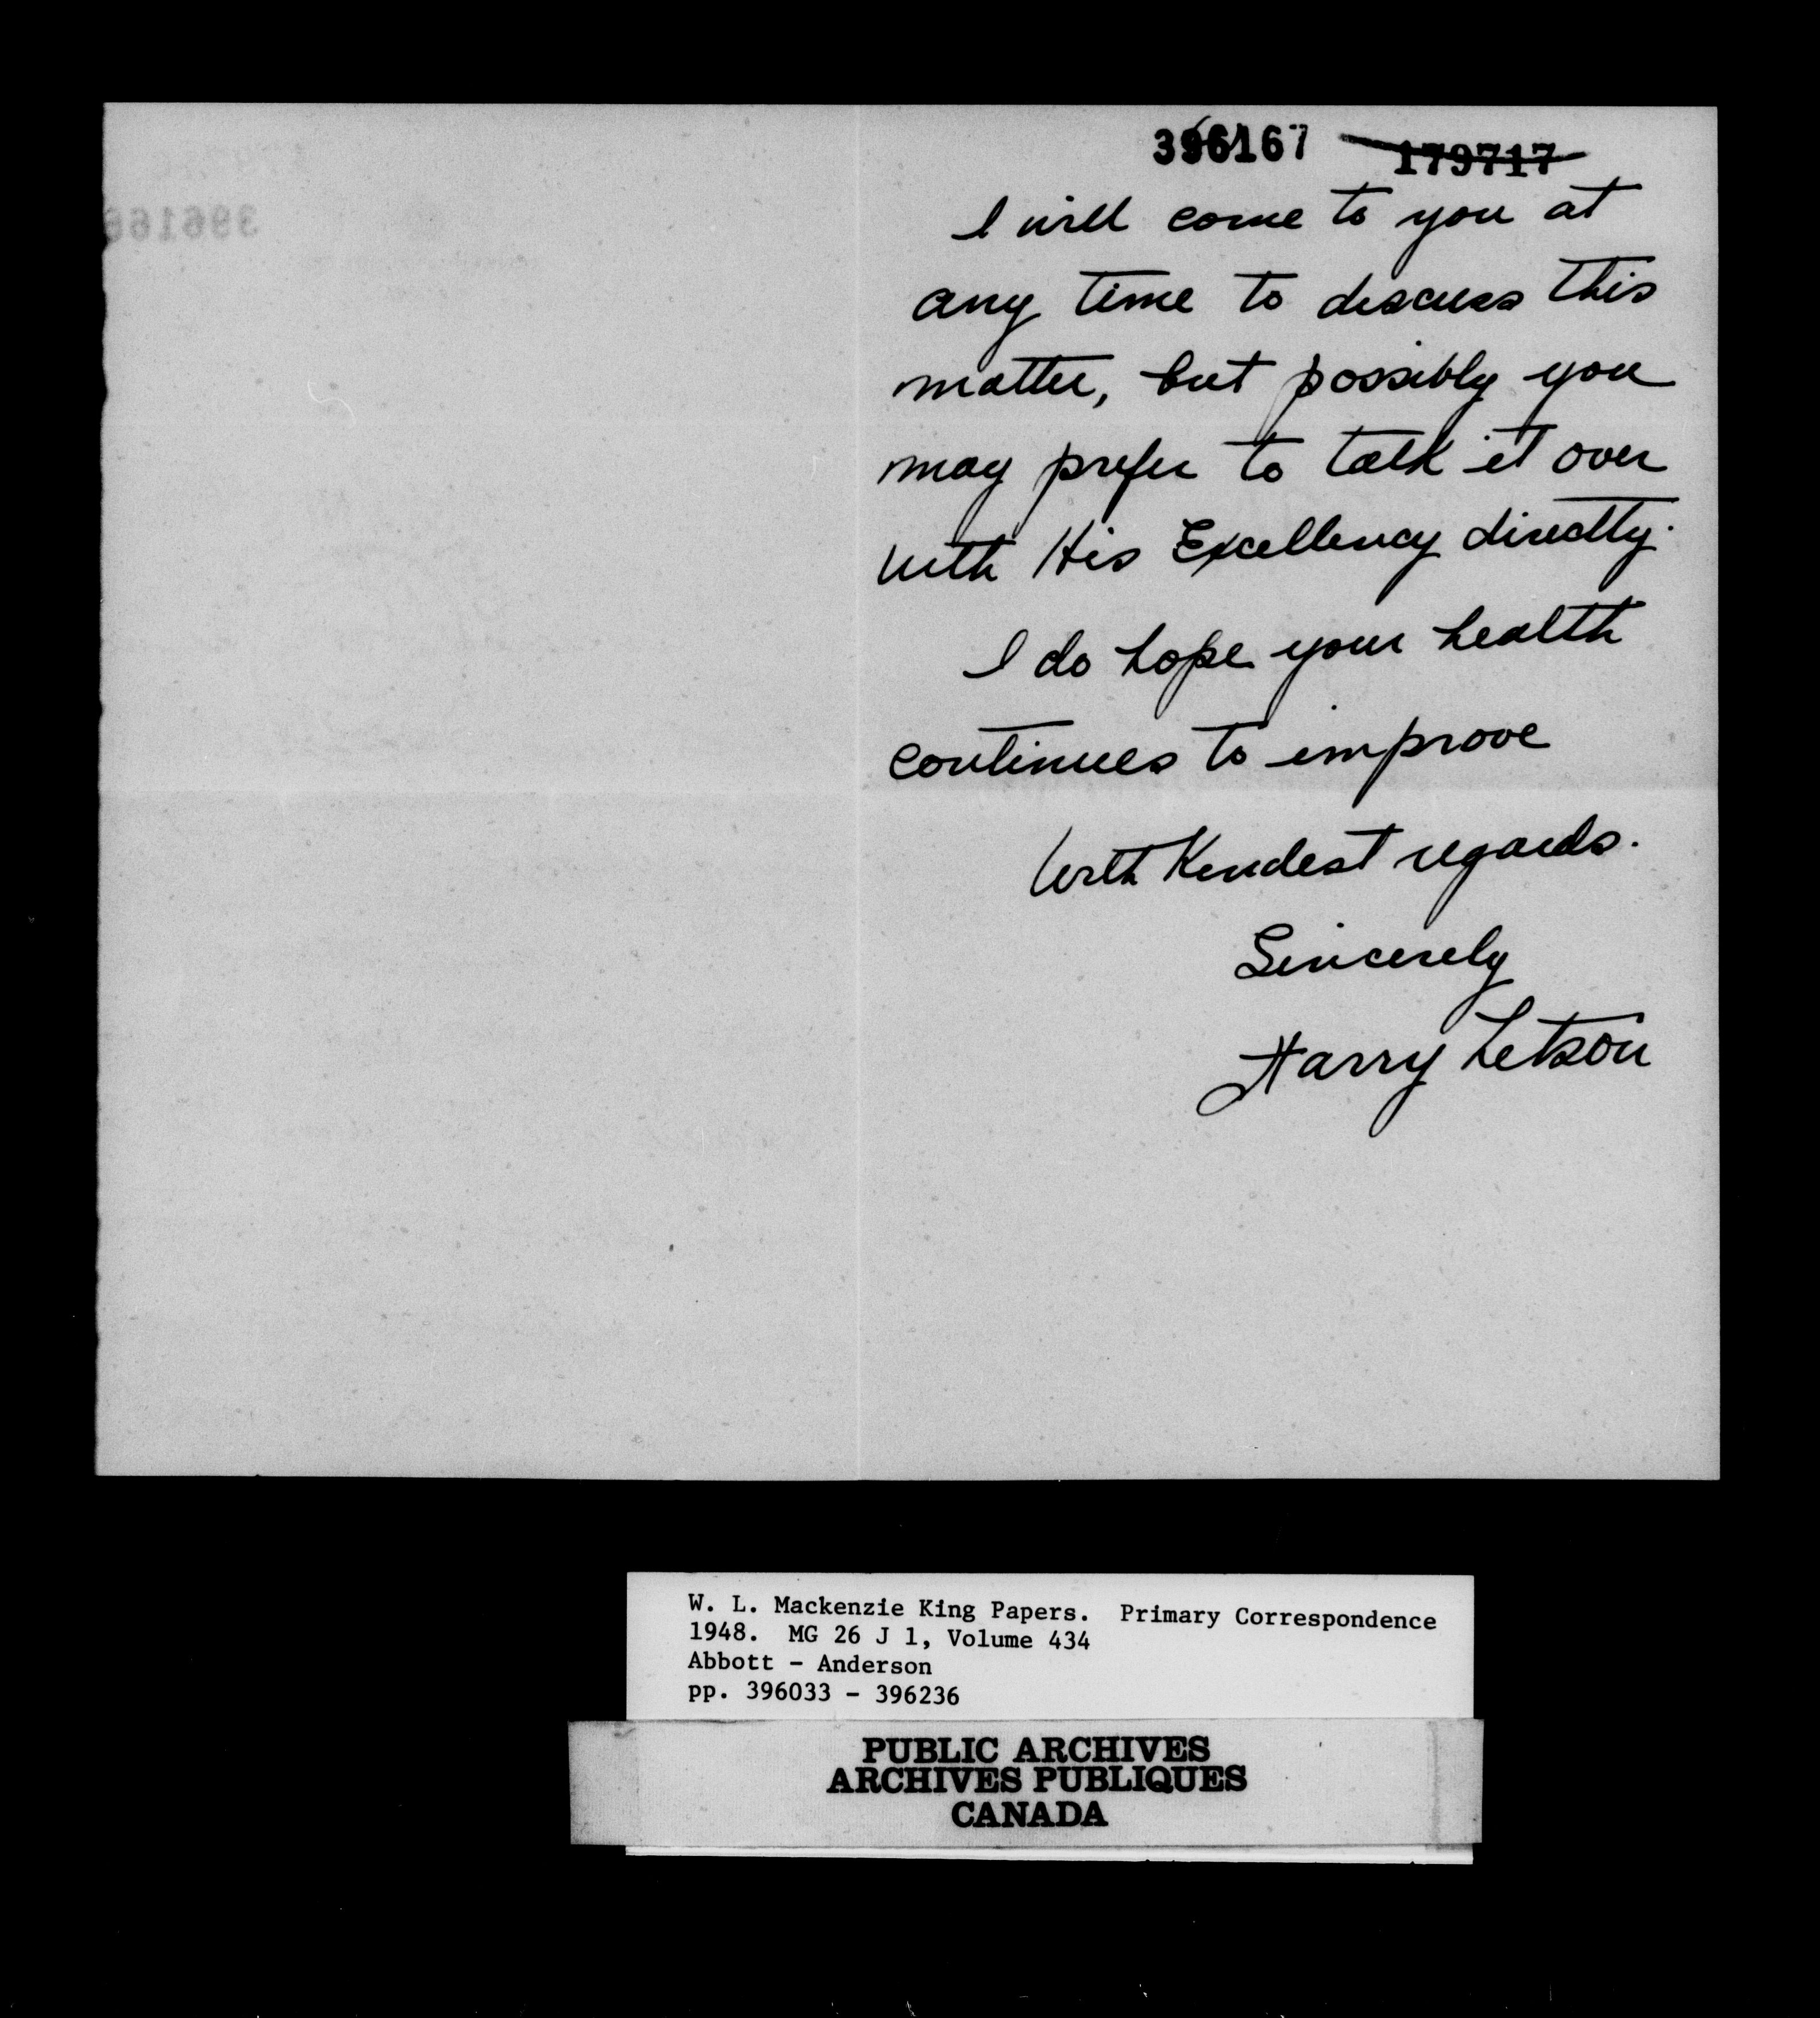 396167 179717
396166
I will come to you at
any time to discuss this
matter, but possibly you
may prefer to talk it over
with His Excellency directly.
I do hope your health
continues to improve
With Kindest regards.
Sincerely
Harry Letson
W. L. Mackenzie King Papers. Primary Correspondence
1948. MG 26 J 1, Volume 434
Abbott - Anderson
pp. 396033 - 396236
PUBLIC ARCHIVES
ARCHIVES PUBLIQUES
CANADA